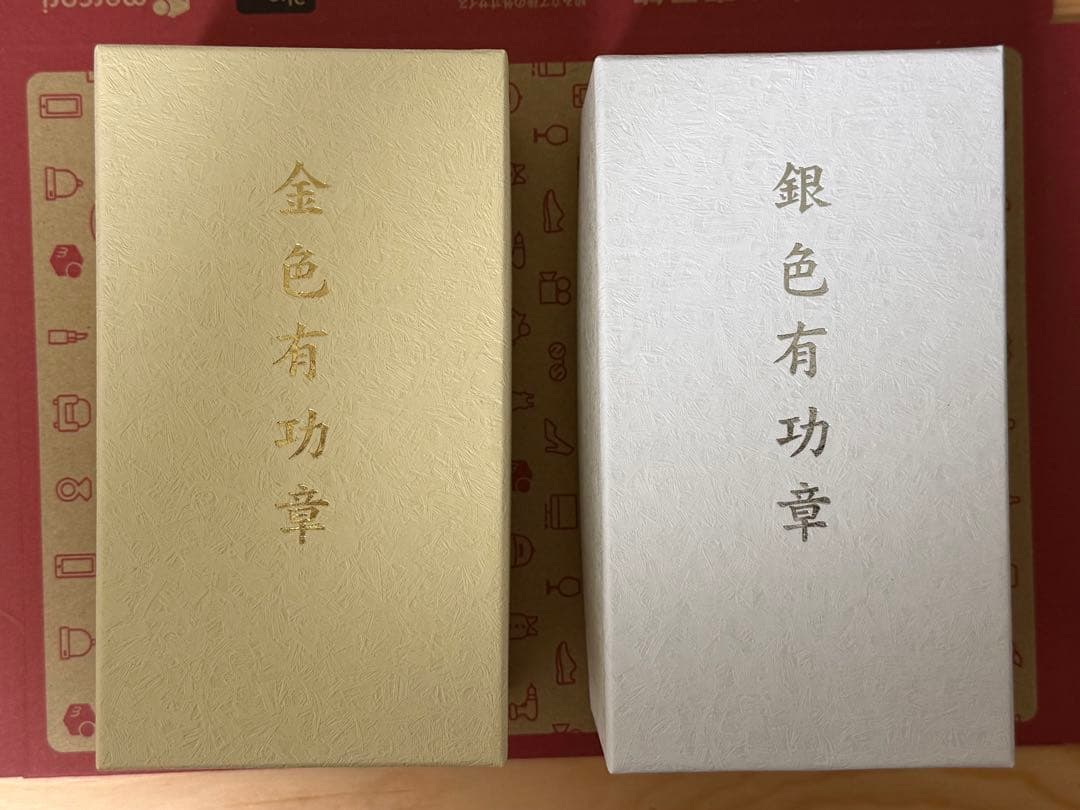 金色有功章
銀色有功章